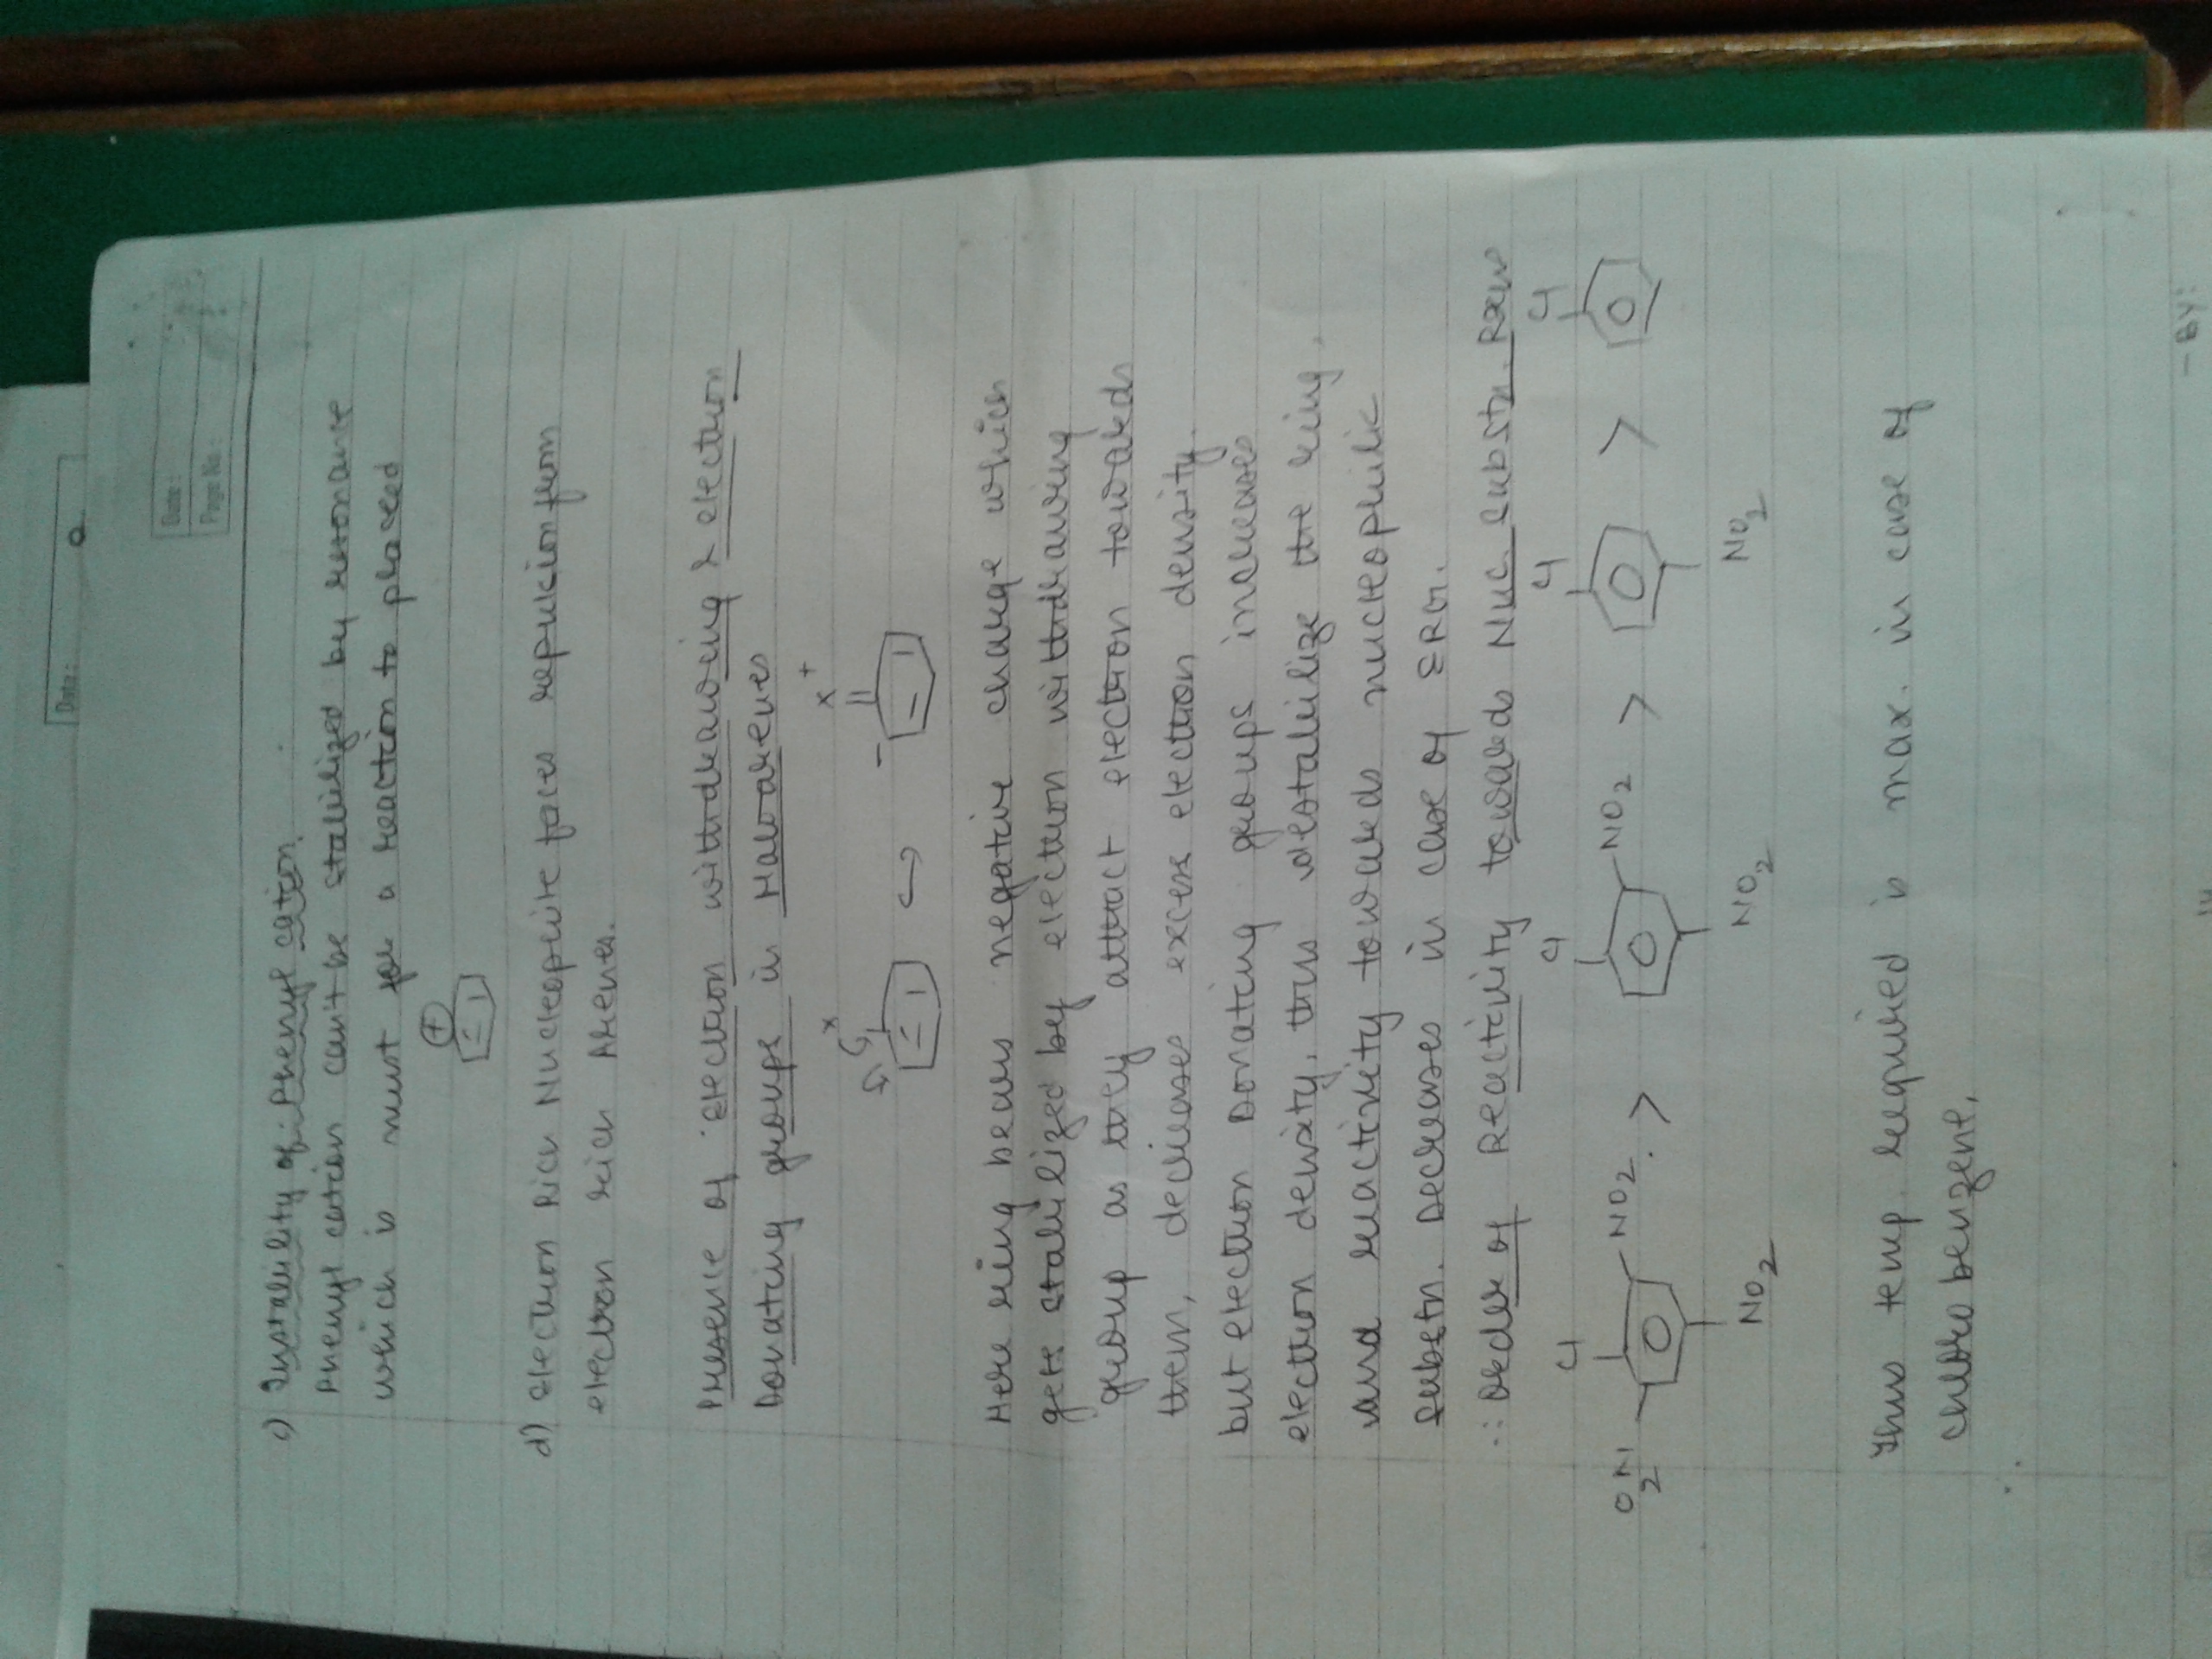 Date:
Date:
Page No:
c) Instability of Phenyl cation.
Phenyl cation can't be stabilized by resonance
which is must for a reaction to proceed
+
d) Electron Rich Nucleophile faces repulsion from
electron rich Arenes.
Presence of Electron withdrawing & electron
Donating groups in Haloarenes
X
X +
-
Here ring bears negative charge which
gets stabilized by electron withdrawing
group as they attract electron towards
them, decreases excess electron density.
but electron Donating groups increases
electron density, thus destabilize the ring,
and reactivity towards nucleophilic
substn. Decreases in case of ERG.
∴ Order of Reactivity towards Nuc. Substn. Rxns
Cl Cl Cl Cl
O2N NO2. > NO2 > >
NO2 NO2 NO2
Thus temp. required is max. in case of
chloro benzene.
- By: